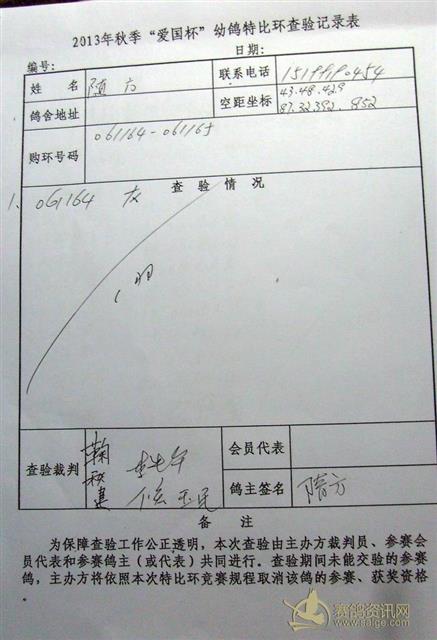 2013年秋季“爱国杯”幼鸽特比环查验记录表
编号： 日期：
姓名 随方 联系电话
鸽舍地址 空距坐标 43.48.429
87.32392.852
购环号码 061164-061165
查验情况
1、061164 灰
查验裁判 会员代表
鸽主签名 隋方
备注
为保障查验工作公正透明，本次查验由主办方裁判员、参赛会
员代表和参赛鸽主（或代表）共同进行。查验期间未能交验的参赛
鸽，主办方将依照本次特比环竞赛规程取消该鸽的参赛、获奖资格
赛鸽资讯网
www.saige.com